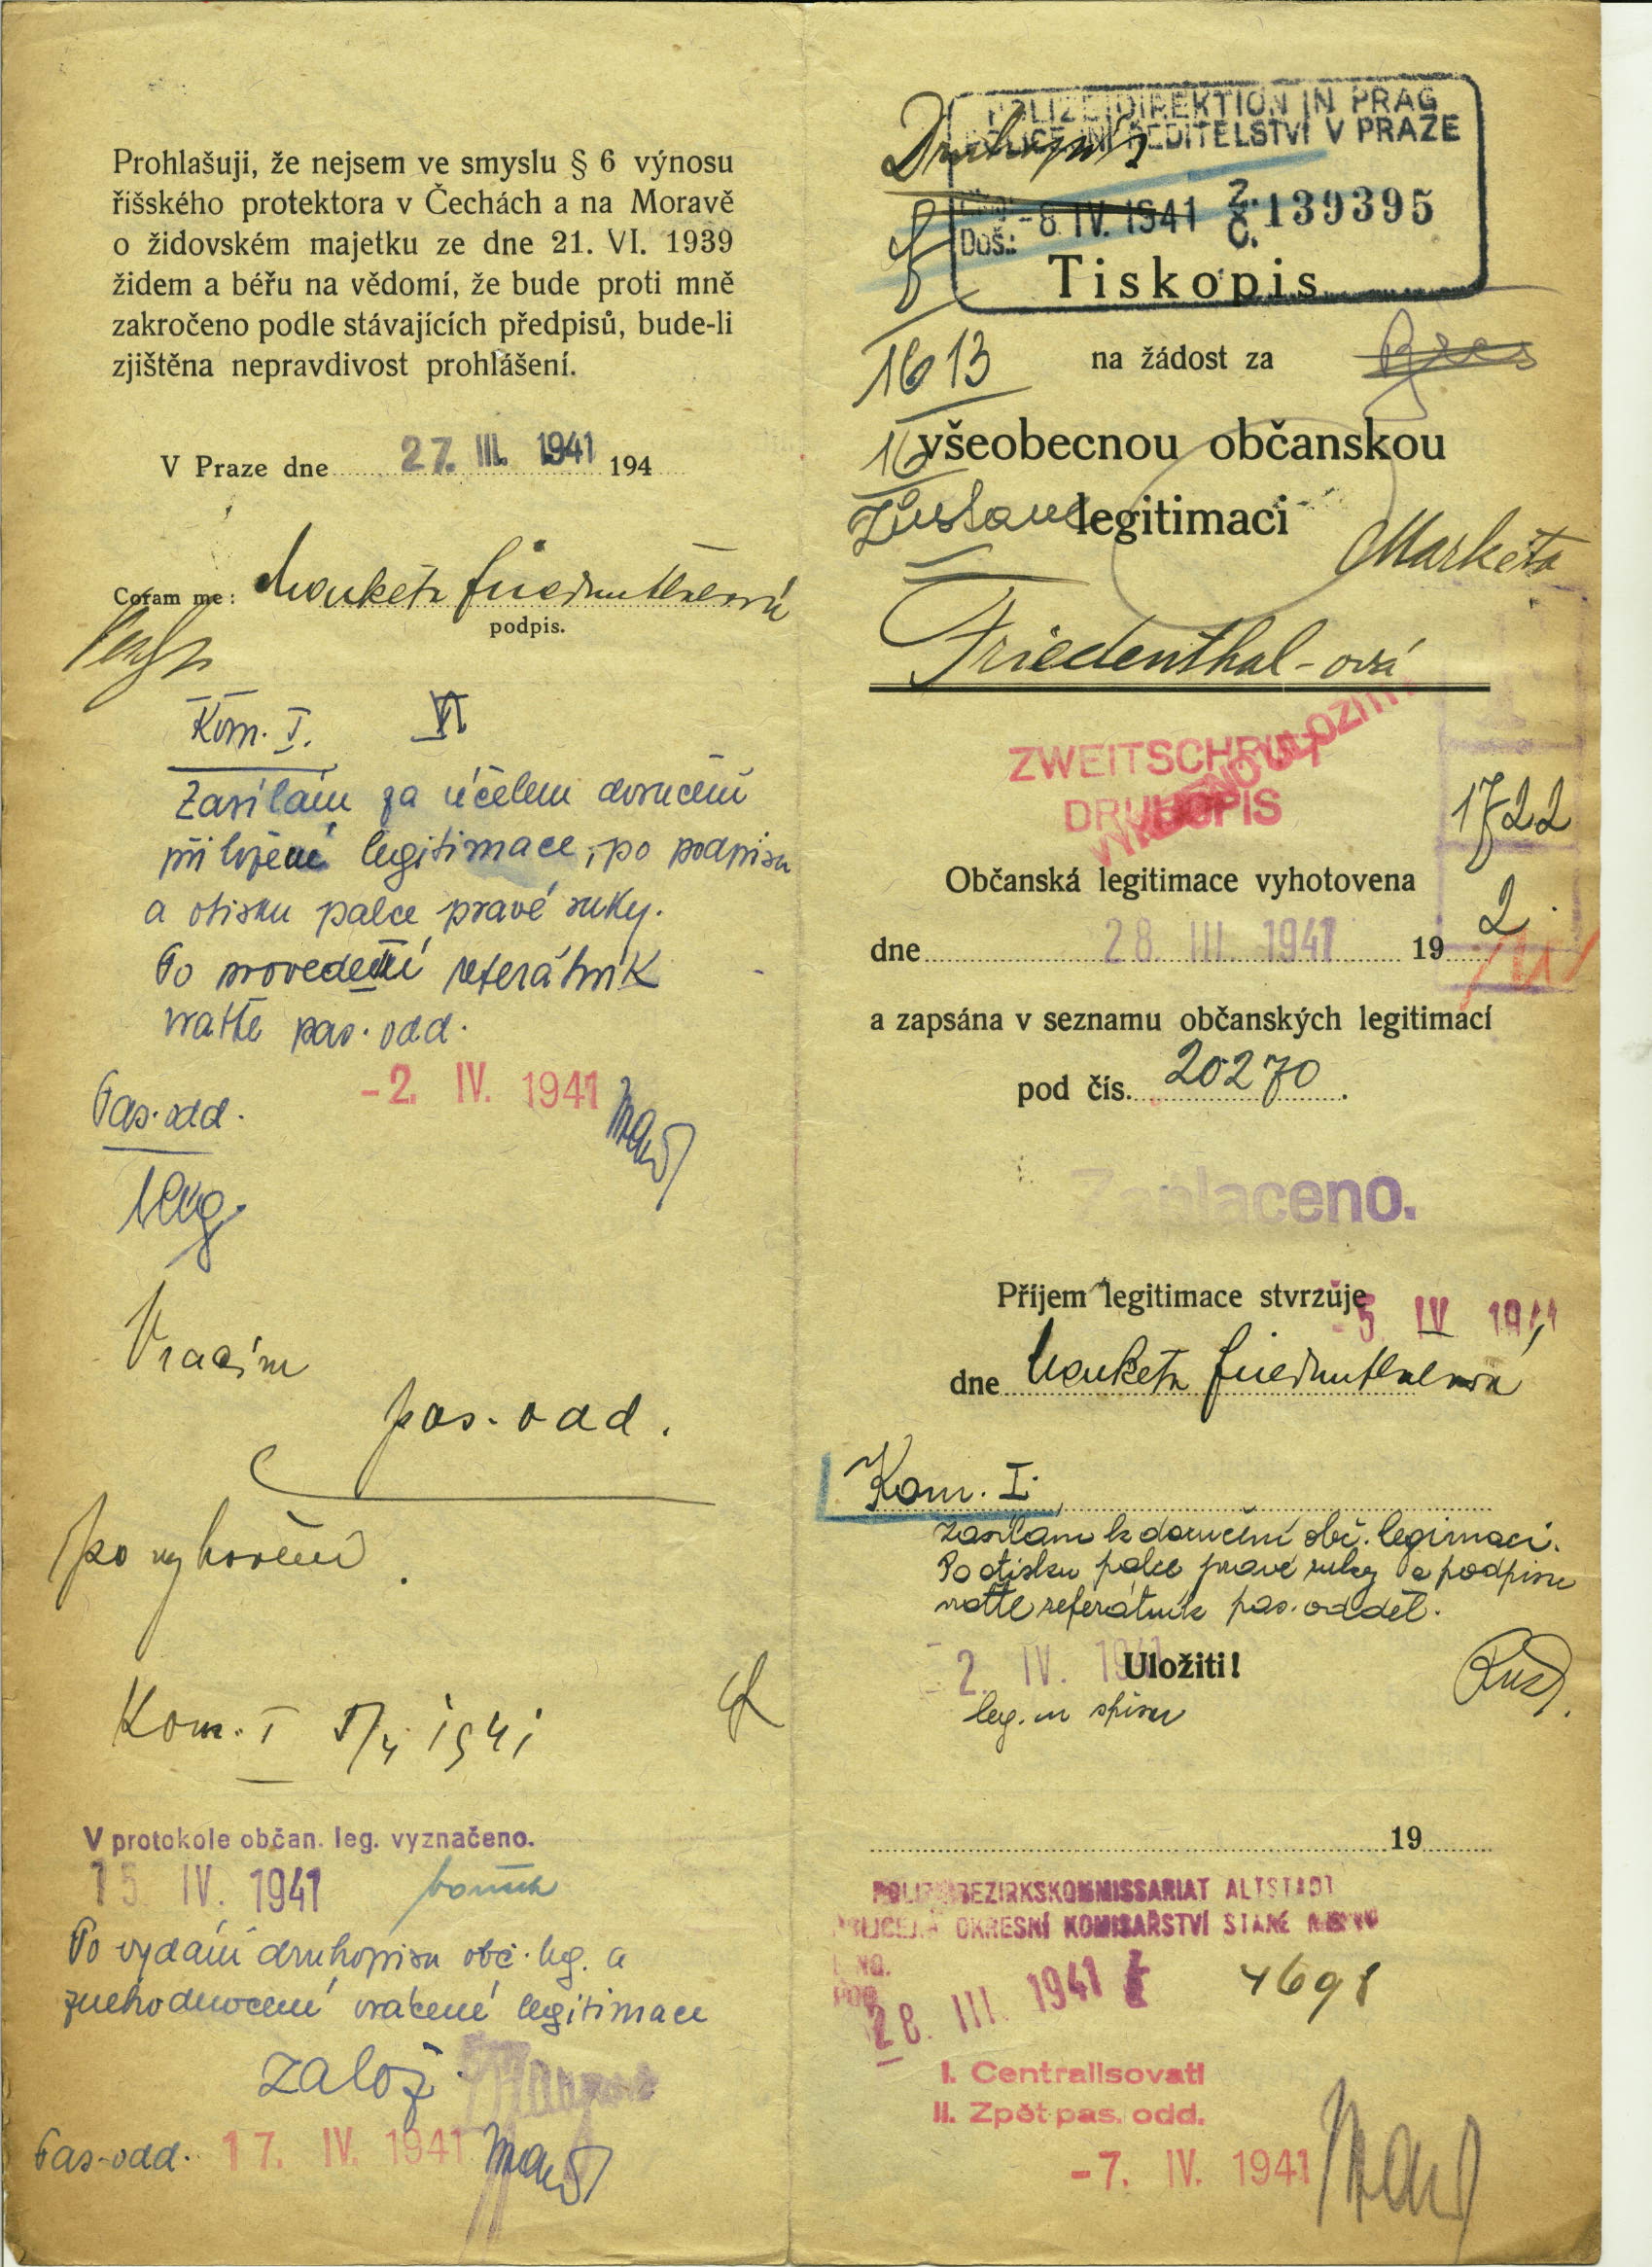 Prohlašuji, že nejsem ve smyslu § 6 výnosu
říšského protektora v Čechách a na Moravě
o židovském majetku ze dne 21. VI. 1939
židem a béřu na vědomí, že bude proti mně
zakročeno podle stávajících předpisů, bude-li
zjištěna nepravdivost prohlášení.
V Praze dne 27. III. 1941 194
Coram me: Markéta Friedenthalová
podpis.
Kom. I. VI
Zasílám za účelem doručení
přiložené legitimace, po podpisu
a otisku palce pravé ruky.
Po provedení referátník
vraťte pas. odd.
-2. IV. 1941
Pas. odd.
Vracím
pas. odd.
po vyhovění.
Kom. I 5/4 1941
V protokole občan. leg. vyznačeno.
15 IV. 1941
Po vydání druhopisu obč. leg. a
znehodnocení vrácené legitimace
založ.
Pas-odd. 17. IV. 1941
POLIZEIDIREKTION IN PRAG
POLICEJNÍ ŘEDITELSTVÍ V PRAZE
Druhopis
Došl.: -8. IV. 1941 Z. Č. 139395
Tiskopis
1613
na žádost za
16
všeobecnou občanskou
legitimaci
Markéta
Friedenthal-ová
ZWEITSCHRIFT
DRUHOPIS
1722
2
Občanská legitimace vyhotovena
dne 28. III. 1941 19
a zapsána v seznamu občanských legitimací
pod čís. 20270.
Zaplaceno.
Příjem legitimace stvrzuje
-5 IV 1941
dne Markéta Friedenthalová
Kom. I.
zasílám k doručení obč. legimaci.
Po otisku palce pravé ruky a podpisu
vraťte referátník pas. odděl.
2. IV. 1941 Uložiti!
leg. ve spisu
19
POLIZEIBEZIRKSKOMMISSARIAT ALTSTADT
POLICEJNÍ OKRESNÍ KOMISAŘSTVÍ STARÉ MĚSTO
28. III. 1941 4698
I. Centralisovati
II. Zpět pas. odd.
-7. IV. 1941